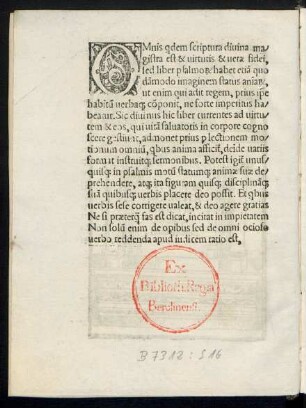 OMnis qdem scriptura diuina ma
gistra est & virtutis & uera fidei,
sed liber psalmorum habet etiā quo
dāmodo imaginem status animæ,
ut enim qui adit regem, prius ipse
habitū uerbaqꝫ cōponit, ne forte imperitus ha
beatur. Sic diuinus hic liber currentes ad uirtu
tem & eos, qui uitā saluatoris in corpore cogno
scere gestiūt, admonet prius p lectionem mo
tionum omniū, qbus anima afficit, deide uatiis
format institutqꝫ sermonibus. Potest igit unus/
quisqꝫ in psalmis motū statumqꝫ animæ suæ de
prehendere, atqꝫ ita figuram quisqꝫ disciplināqꝫ
sitā quibusqꝫ verbis placere deo possit. Et qbus
verbis sese corrigere valeat, & deo agere gratias
Ne si præterqꝫ fas est dicat, incitat in impietatem
Non solū enim de opibus sed de omni ocioso
uerbo reddenda apud iudicem ratio est,
Ex
Biblioth. Regia
Berolinensi.
B 7312 : S 16